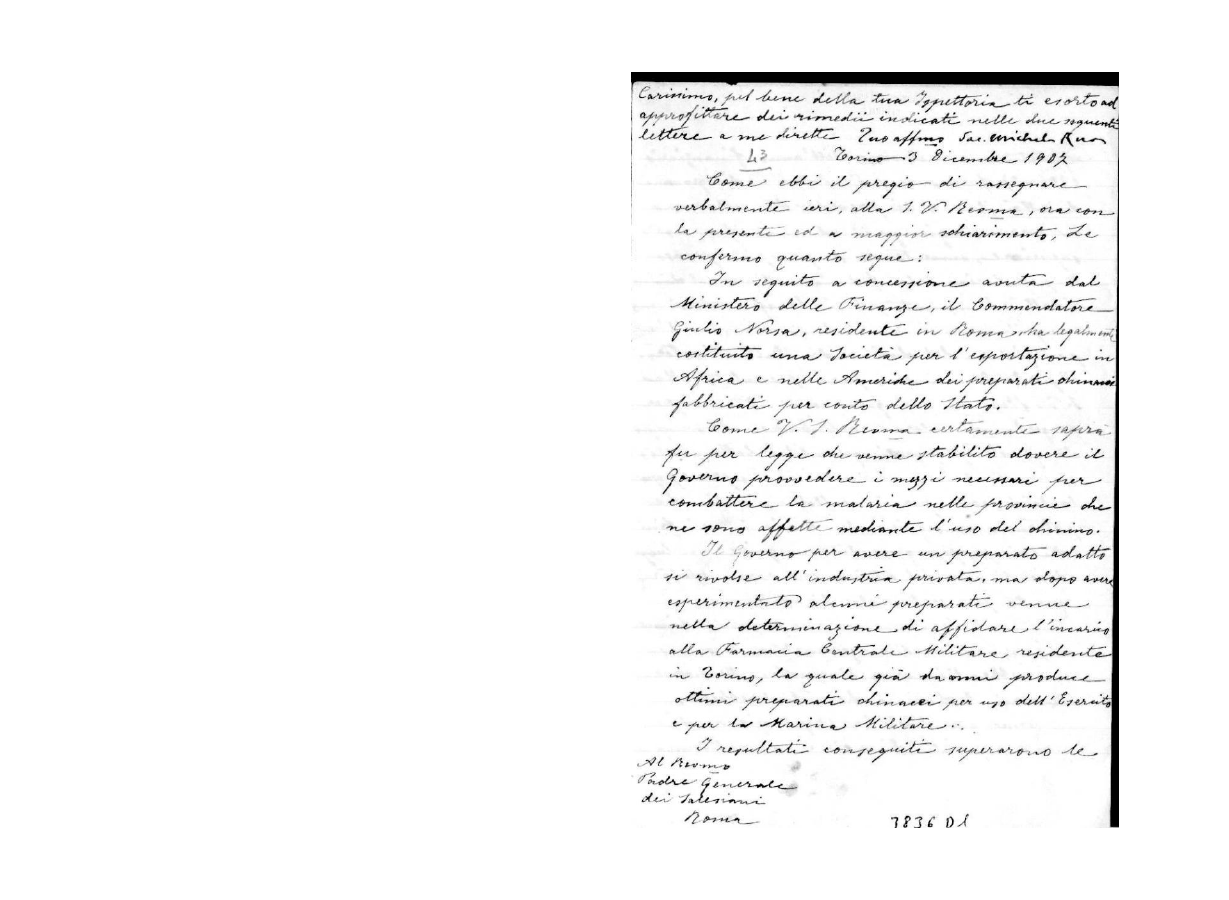 Carissimo, pel bene della tua Ispettoria ti esorto ad
approfittare dei rimedii indicati nelle due seguenti
lettere a me dirette Tuo affmo Sac. Michele Rua
43 Torino 3 Dicembre 1907
Come ebbi il pregio di rassegnare
verbalmente ieri, alla S. V. Revma, ora con
la presente ed a maggior schiarimento, Le
confermo quanto segue:
In seguito a concessione avuta dal
Ministero delle Finanze, il Commendatore
Giulio Norsa, residente in Roma, ha legalmente
costituito una Società per l'esportazione in
Africa e nelle Americhe dei preparati chinacei
fabbricati per conto dello Stato.
Come V. S. Revma certamente saprà
fu per legge che venne stabilito dovere il
Governo provvedere i mezzi necessari per
combattere la malaria nelle provincie che
ne sono affette mediante l'uso del chinino.
Il Governo per avere un preparato adatto
si rivolse all'industria privata, ma dopo avere
esperimentato alcuni preparati venne
nella determinazione di affidare l'incarico
alla Farmacia Centrale Militare residente
in Torino, la quale già da anni produce
ottimi preparati chinacei per uso dell'Esercito
e per la Marina Militare.
I resultati conseguiti superarono le
Al Revmo
Padre Generale
dei Salesiani
Roma
3836 D1